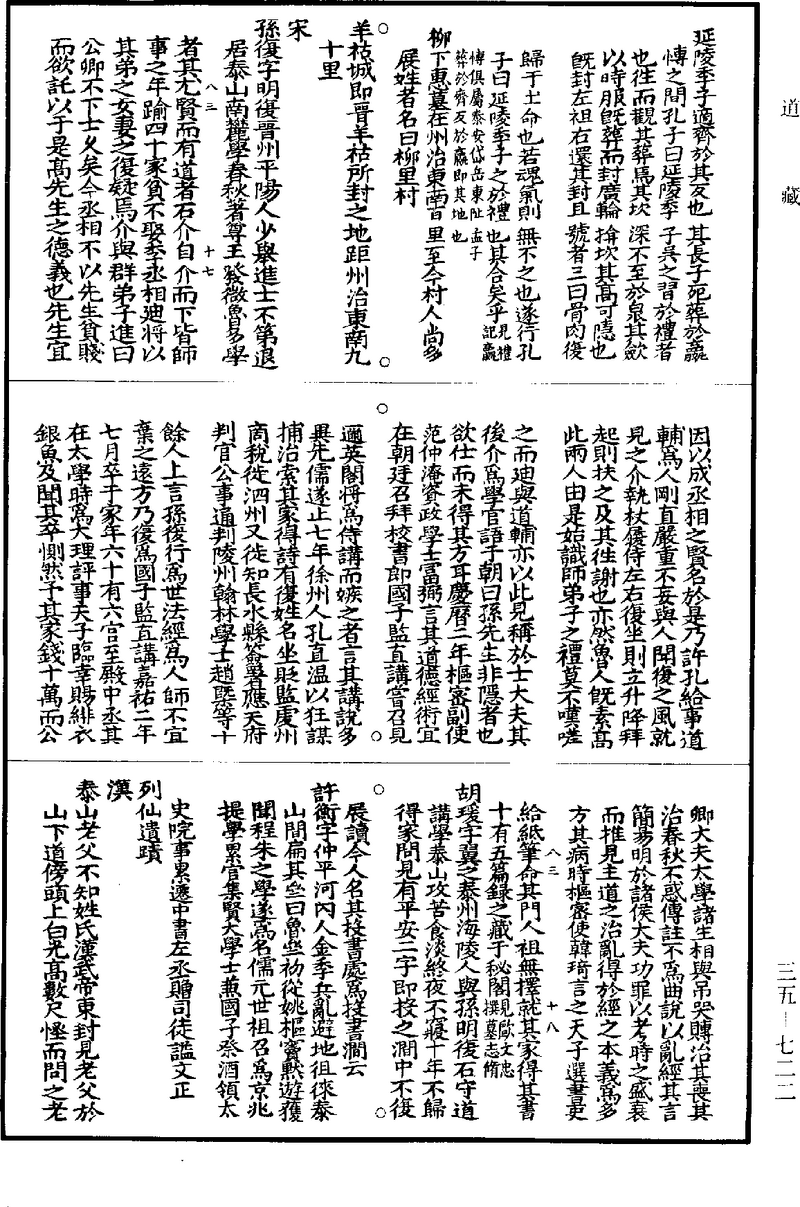 道藏
延陵季子適齊於其反也其長子死葬於嬴
愽之間孔子曰延陵季子吳之習於禮者
也徃而觀其葬焉其坎深不至於泉其歛
以時服旣葬而封廣輪揜坎其髙可隱也
旣封左袒右還其封且號者三曰骨肉復
歸于土命也若魂氣則無不之也遂行孔
子曰延陵季子之於禮也其合矣乎見禮記嬴
愽俱屬泰安岱岳東址孟子
葬於齊反於嬴即其地也
柳下惠墓在州治東南百里至今村人尚多
展姓者名曰柳里村
羊祜城即晉羊祜所封之地距州治東南九
十里
宋
孫復字明復晉州平陽人少舉進士不第退
居泰山南麓學春秋著尊王發微魯多學
八三
十七
者其尤賢而有道者石介自介而下皆師
事之年踰四十家貧不娶李丞相廸將以
其弟之女妻之復疑焉介與群弟子進曰
公卿不下士乆矣今丞相不以先生貧賤
而欲託以子是髙先生之德義也先生宜
因以成丞相之賢名於是乃許孔給事道
輔爲人剛直嚴重不妄與人聞復之風就
見之介執杖屨侍左右復坐則立升降拜
起則扶之及其徃謝也亦然魯人旣素髙
此兩人由是始識師弟子之禮莫不嘆嗟
之而廸與道輔亦以此見稱於士大夫其
後介爲學官語于朝曰孫先生非隱者也
欲仕而未得其方耳慶曆二年樞密副使
范仲淹資政學士富弼言其道德經術宜
在朝廷召拜校書郎國子監直講嘗召見
邇英閣將爲侍講而嫉之者言其講說多
異先儒遂止七年徐州人孔直温以狂謀
捕治索其家得詩有復姓名坐貶監虔州
商稅徙泗州又徙知長水縣簽署應天府
判官公事通判陵州翰林學士趙槩等十
餘人上言孫復行爲世法經爲人師不宜
棄之遠方乃復爲國子監直講嘉祐二年
七月卒于家年六十有六官至殿中丞其
在太學時爲大理評事天子臨幸賜緋衣
銀魚及聞其卒惻然予其家錢十萬而公
卿大夫太學諸生相與吊哭賻治其喪其
治春秋不惑傳註不爲曲說以亂經其言
簡昜明於諸侯大夫功罪以考時之盛衰
而推見王道之治亂得於經之本義爲多
方其病時樞密使韓琦言之天子選書吏
八三
十八
給紙筆命其門人祖無擇就其家得其書
十有五篇錄之藏于秘閣見歐文忠撰墓志銘
胡瑗字翼之泰州海陵人與孫明復石守道
講學泰山攻苦食淡終夜不寢十年不歸
得家問見有平安二字即投之澗中不復
展讀今人名其投書處爲投書澗云
許衡字仲平河內人金季兵亂避地徂徠泰
山間扁其𠫵曰魯𠫵初從姚樞竇默遊獲
聞程朱之學遂爲名儒元世祖召爲京兆
提學累官集賢大學士兼國子祭酒領太
史院事累遷中書左丞贈司徒謚文正
列仙遺蹟
漢
泰山老父不知姓氏漢武帝東封見老父於
山下道傍頭上白光髙數尺怪而問之老
三五－七二二